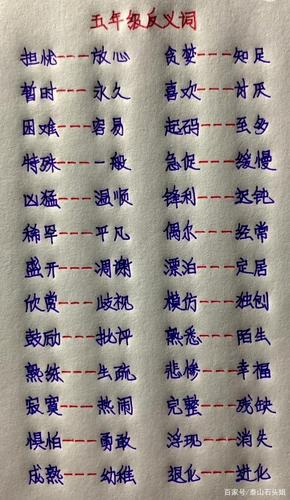 五年级反义词
担忧---放心 贪婪---知足
暂时---永久 喜欢---讨厌
困难---容易 起码---至多
特殊---一般 急促---缓慢
凶猛---温顺 锋利---迟钝
稀罕---平凡 偶尔---经常
盛开---凋谢 漂泊---定居
欣赏---歧视 模仿---独创
鼓励---批评 熟悉---陌生
熟练---生疏 悲惨---幸福
寂寞---热闹 完整---残缺
惧怕---勇敢 浮现---消失
成熟---幼稚 退化---进化
百家号/泰山石头姐